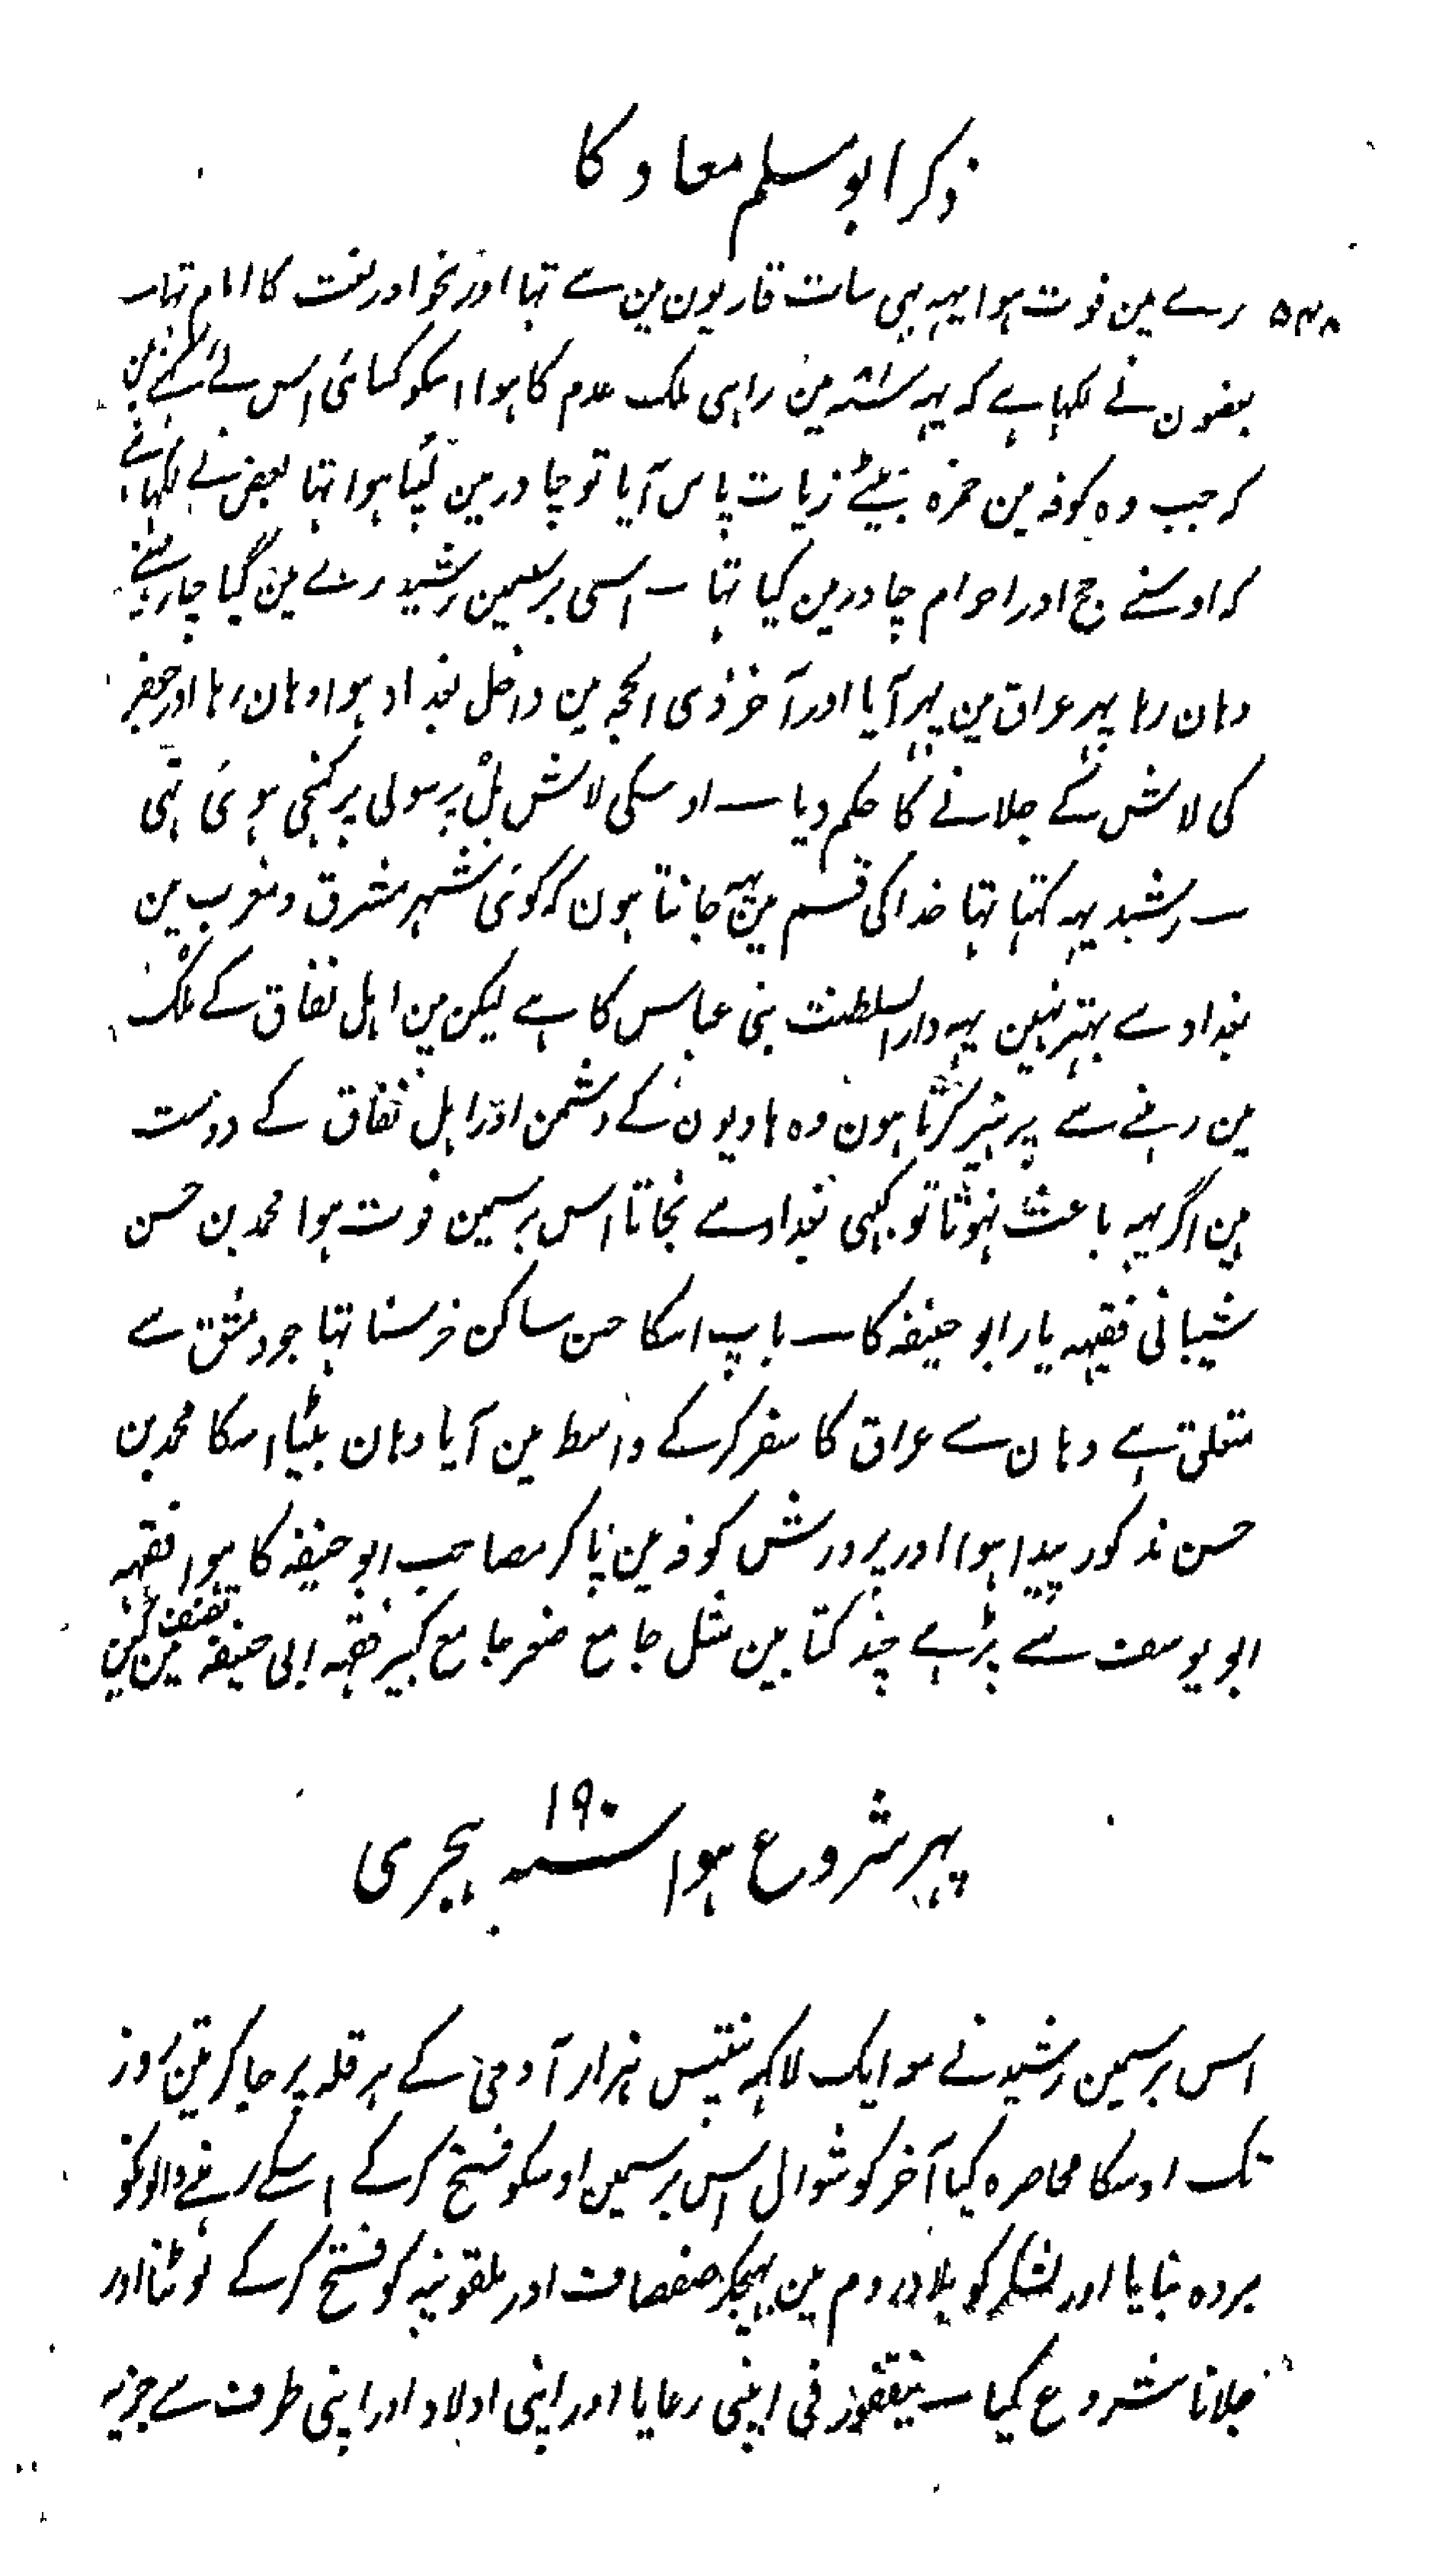 ذکر ابو مسلم معاد کا
۵۴۸
رے مین فوت ہوا یہہ بہی سات قاریون مین سے تہا اور نحو اور لغت کا امام تہا۔
بعضون نے لکہا ہے کہ یہہ مین راہی ملک عدم کا ہوا اسکو کسائی اس لئے کہتے ہین
کہ جب وہ کوفہ مین حمزہ بیٹے زیات پاس آیا تو چادر مین لپٹا ہوا تہا بعض نے لکہا ہے
کہ اوسنے حج اور احرام چادر مین کیا تہا۔ اسی برسمین رشید رے مین گیا چار مہینے
وہان رہا پہر عراق مین پہر آیا اور آخر ذی الحجہ مین داخل بغداد ہوا وہان رہا اور جعفر
کی لاش کے جلانے کا حکم دیا۔ اوسکی لاش پل پر سولی پر کہنچی ہوئی تہی
۔ رشید یہہ کہتا تہا خدا کی قسم مین یہہ جانتا ہون کہ کوئی شہر مشرق و مغرب مین
بغداد سے بہتر نہین یہہ دار السلطنت بنی عباس کا ہے لیکن مین اہل نفاق کے ملک
مین رہنے سے پرہیز کرتا ہون وہ ہادیون کے دشمن اور اہل نفاق کے دوست
ہین اگر یہہ باعث نہوتا تو کبہی بغداد سے نجاتا اس برسمین فوت ہوا محمد بن حسن
شیبانی فقیہہ یار ابو حنیفہ کا۔ باپ اسکا حسن ساکن خرستا تہا جو دمشق سے
متعلق ہے وہان سے عراق کا سفر کرکے واسط مین آیا وہان بیٹا اسکا محمد بن
حسن مذکور پیدا ہوا اور پرورش کوفہ مین پاکر مصاحب ابو حنیفہ کا ہوا فقہہ
ابو یوسف سے پڑہے چند کتابین مثل جامع صغیر جامع کبیر فقہہ ابی حنیفہ مین تصنیف کین
پہر شروع ہوا سنہ ۱۹۰ ہجری
اس برسمین رشید نے سو ایک لاکہہ پنتیس ہزار آدمی کے ہرقلہ پر جاکر تین روز
تک اوسکا محاصرہ کیا آخر کو شوال اس برسمین اوسکو فتح کرکے اسکے رہنے والونکو
بردہ بنایا اور لشکر کو بلاد روم مین بہیجکر صفصاف اور ملقونیہ کو فتح کرکے لوٹنا اور
جلانا شروع کیا۔ نیقفور نی اپنی رعایا اور اپنی اولاد اور اپنی طرف سے جزیہ